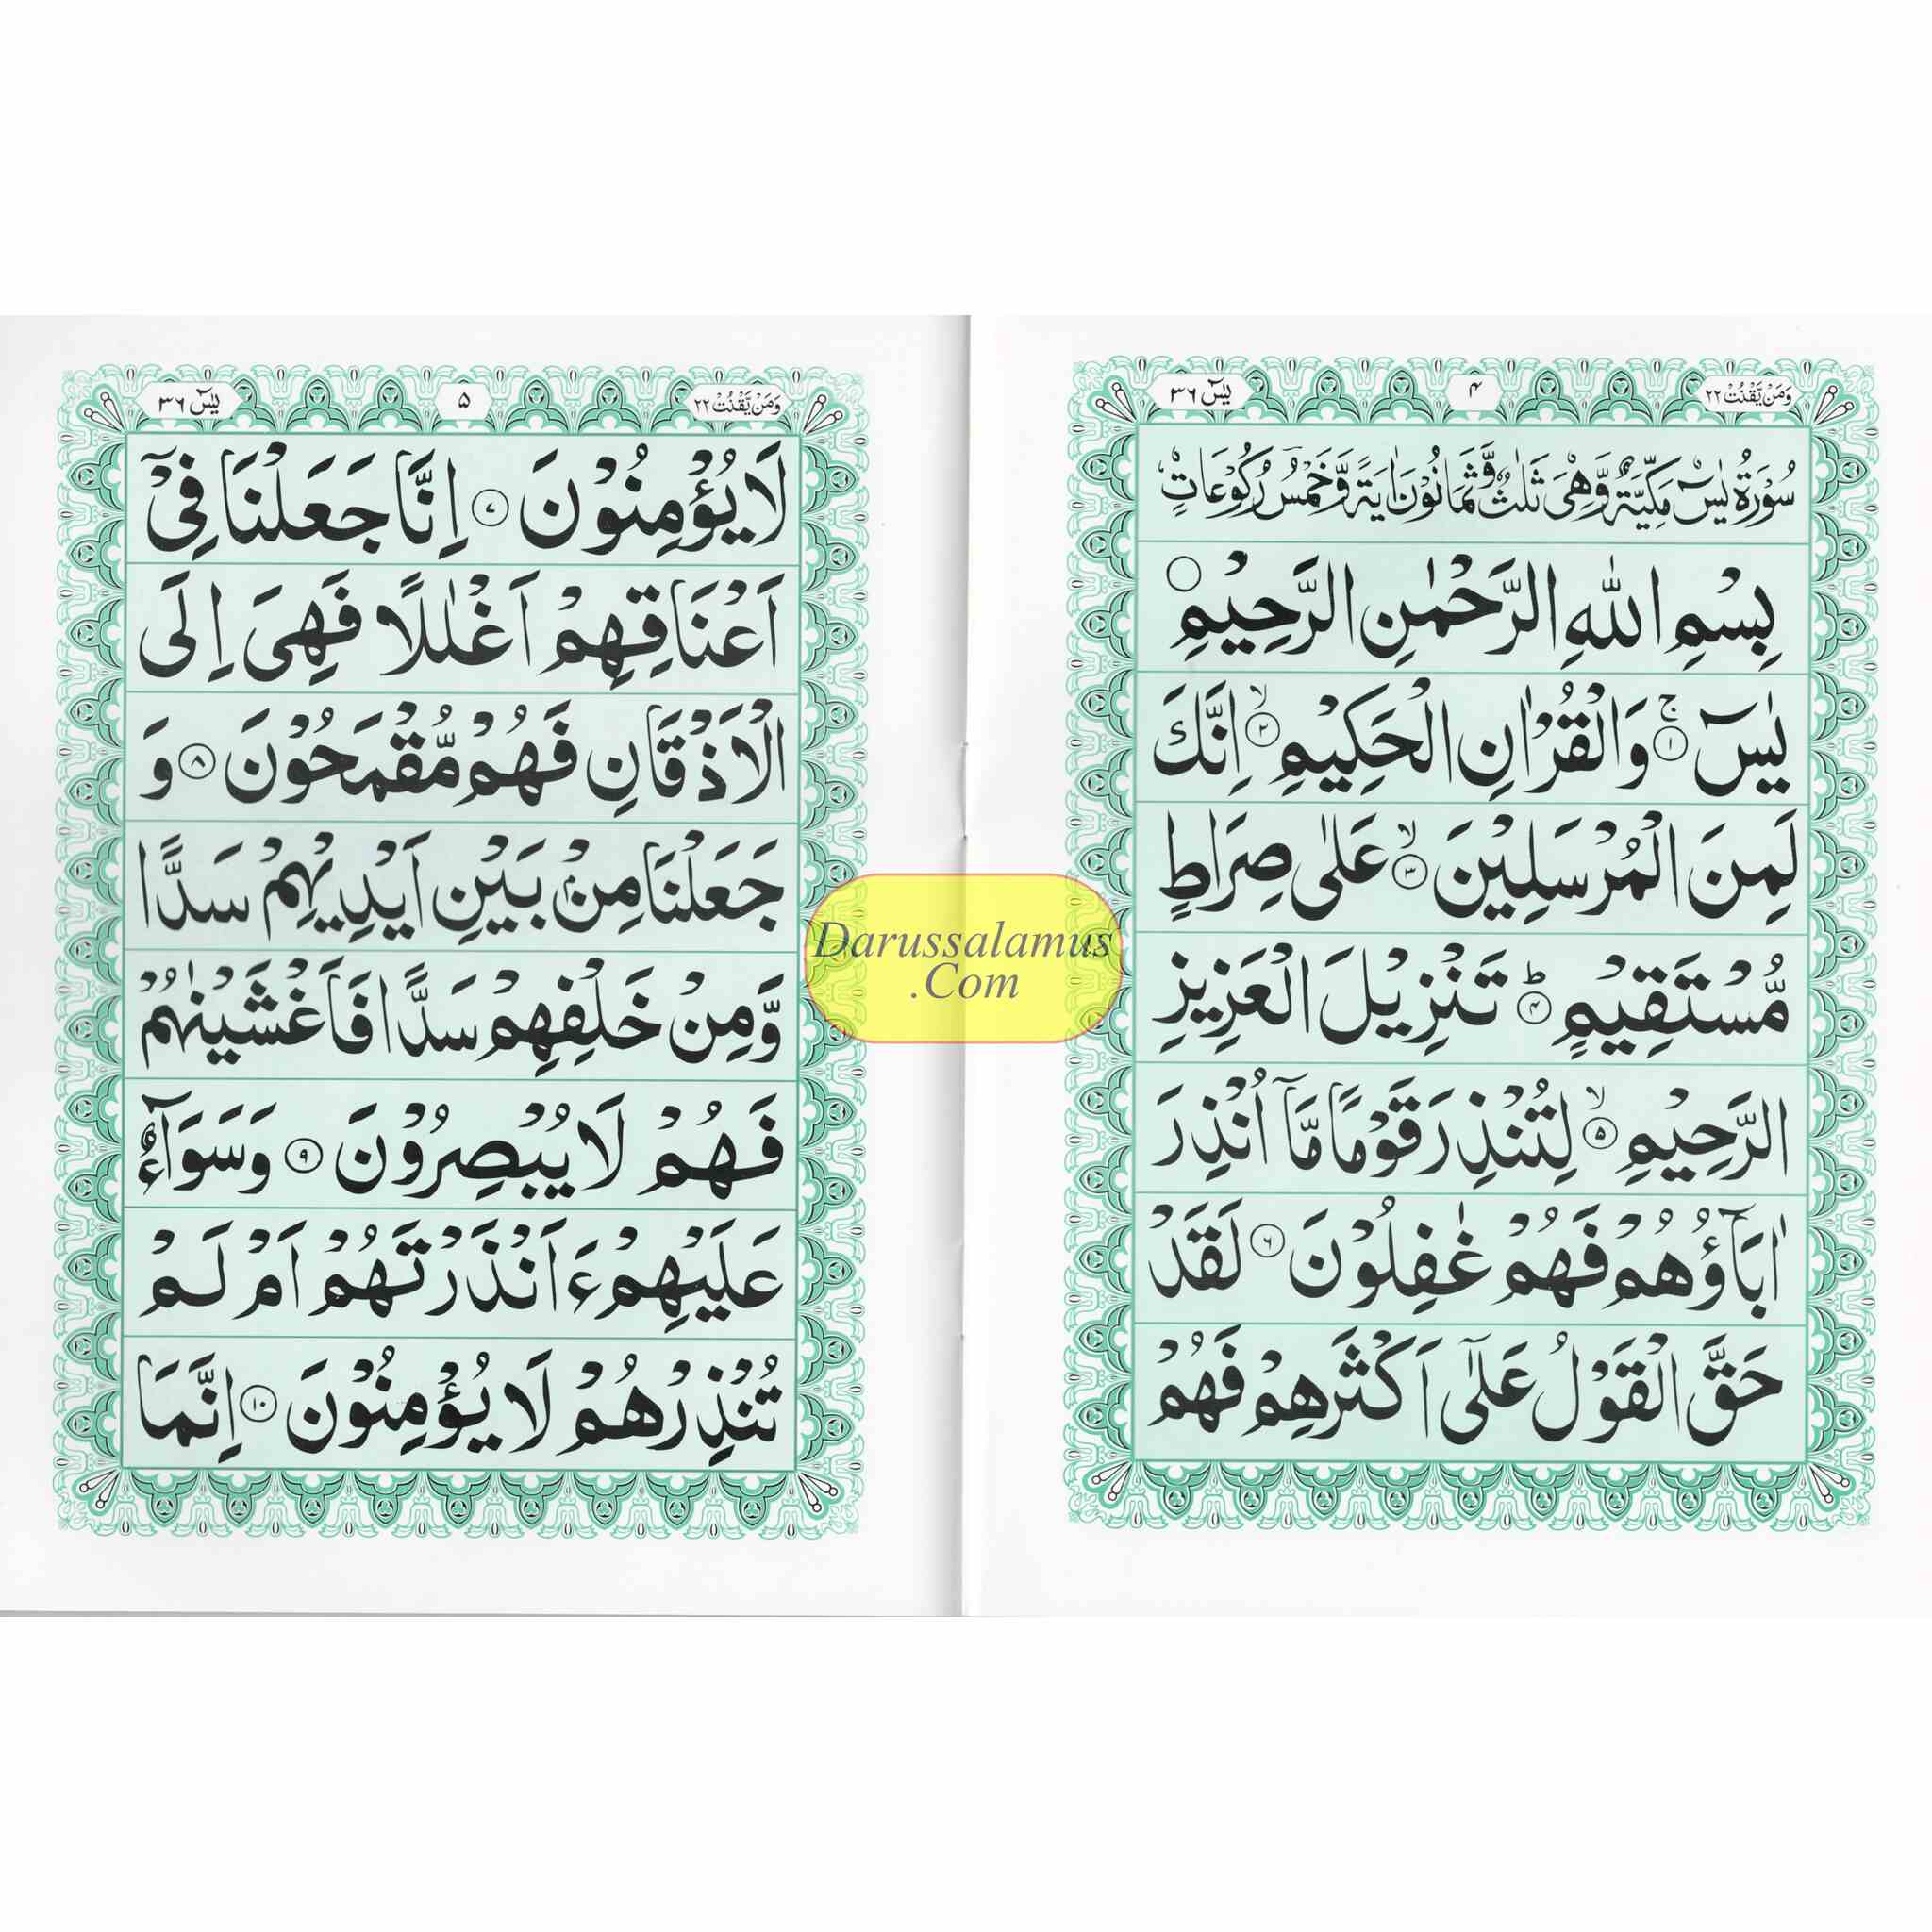 وَمَنْ يَّقْنُتْ ٢٢
۴
يٰسٓ ٣٦
سُوْرَةُ يٰسٓ مَكِّيَّةٌ وَّهِيَ ثَلٰثٌ وَّثَمَانُوْنَ اٰيَةً وَّخَمْسُ رُكُوْعَاتٍ
بِسْمِ اللّٰهِ الرَّحْمٰنِ الرَّحِيْمِ ○
يٰسٓ ۚ ﴿١﴾ وَالْقُرْاٰنِ الْحَكِيْمِ ۙ ﴿٢﴾ اِنَّكَ
لَمِنَ الْمُرْسَلِيْنَ ۙ ﴿٣﴾ عَلٰى صِرَاطٍ
مُّسْتَقِيْمٍ ؕ ﴿۴﴾ تَنْزِيْلَ الْعَزِيْزِ
الرَّحِيْمِ ۙ ﴿۵﴾ لِتُنْذِرَ قَوْمًا مَّآ اُنْذِرَ
اٰبَآؤُهُمْ فَهُمْ غٰفِلُوْنَ ﴿۶﴾ لَقَدْ
حَقَّ الْقَوْلُ عَلٰٓى اَكْثَرِهِمْ فَهُمْ
وَمَنْ يَّقْنُتْ ٢٢
۵
يٰسٓ ٣٦
لَا يُؤْمِنُوْنَ ﴿٧﴾ اِنَّا جَعَلْنَا فِيْٓ
اَعْنَاقِهِمْ اَغْلٰلًا فَهِيَ اِلَى
الْاَذْقَانِ فَهُمْ مُّقْمَحُوْنَ ﴿٨﴾ وَ
جَعَلْنَا مِنْۢ بَيْنِ اَيْدِيْهِمْ سَدًّا
وَّمِنْ خَلْفِهِمْ سَدًّا فَاَغْشَيْنٰهُمْ
فَهُمْ لَا يُبْصِرُوْنَ ﴿٩﴾ وَسَوَآءٌ
عَلَيْهِمْ ءَاَنْذَرْتَهُمْ اَمْ لَمْ
تُنْذِرْهُمْ لَا يُؤْمِنُوْنَ ﴿١٠﴾ اِنَّمَا
Darussalamus
.Com